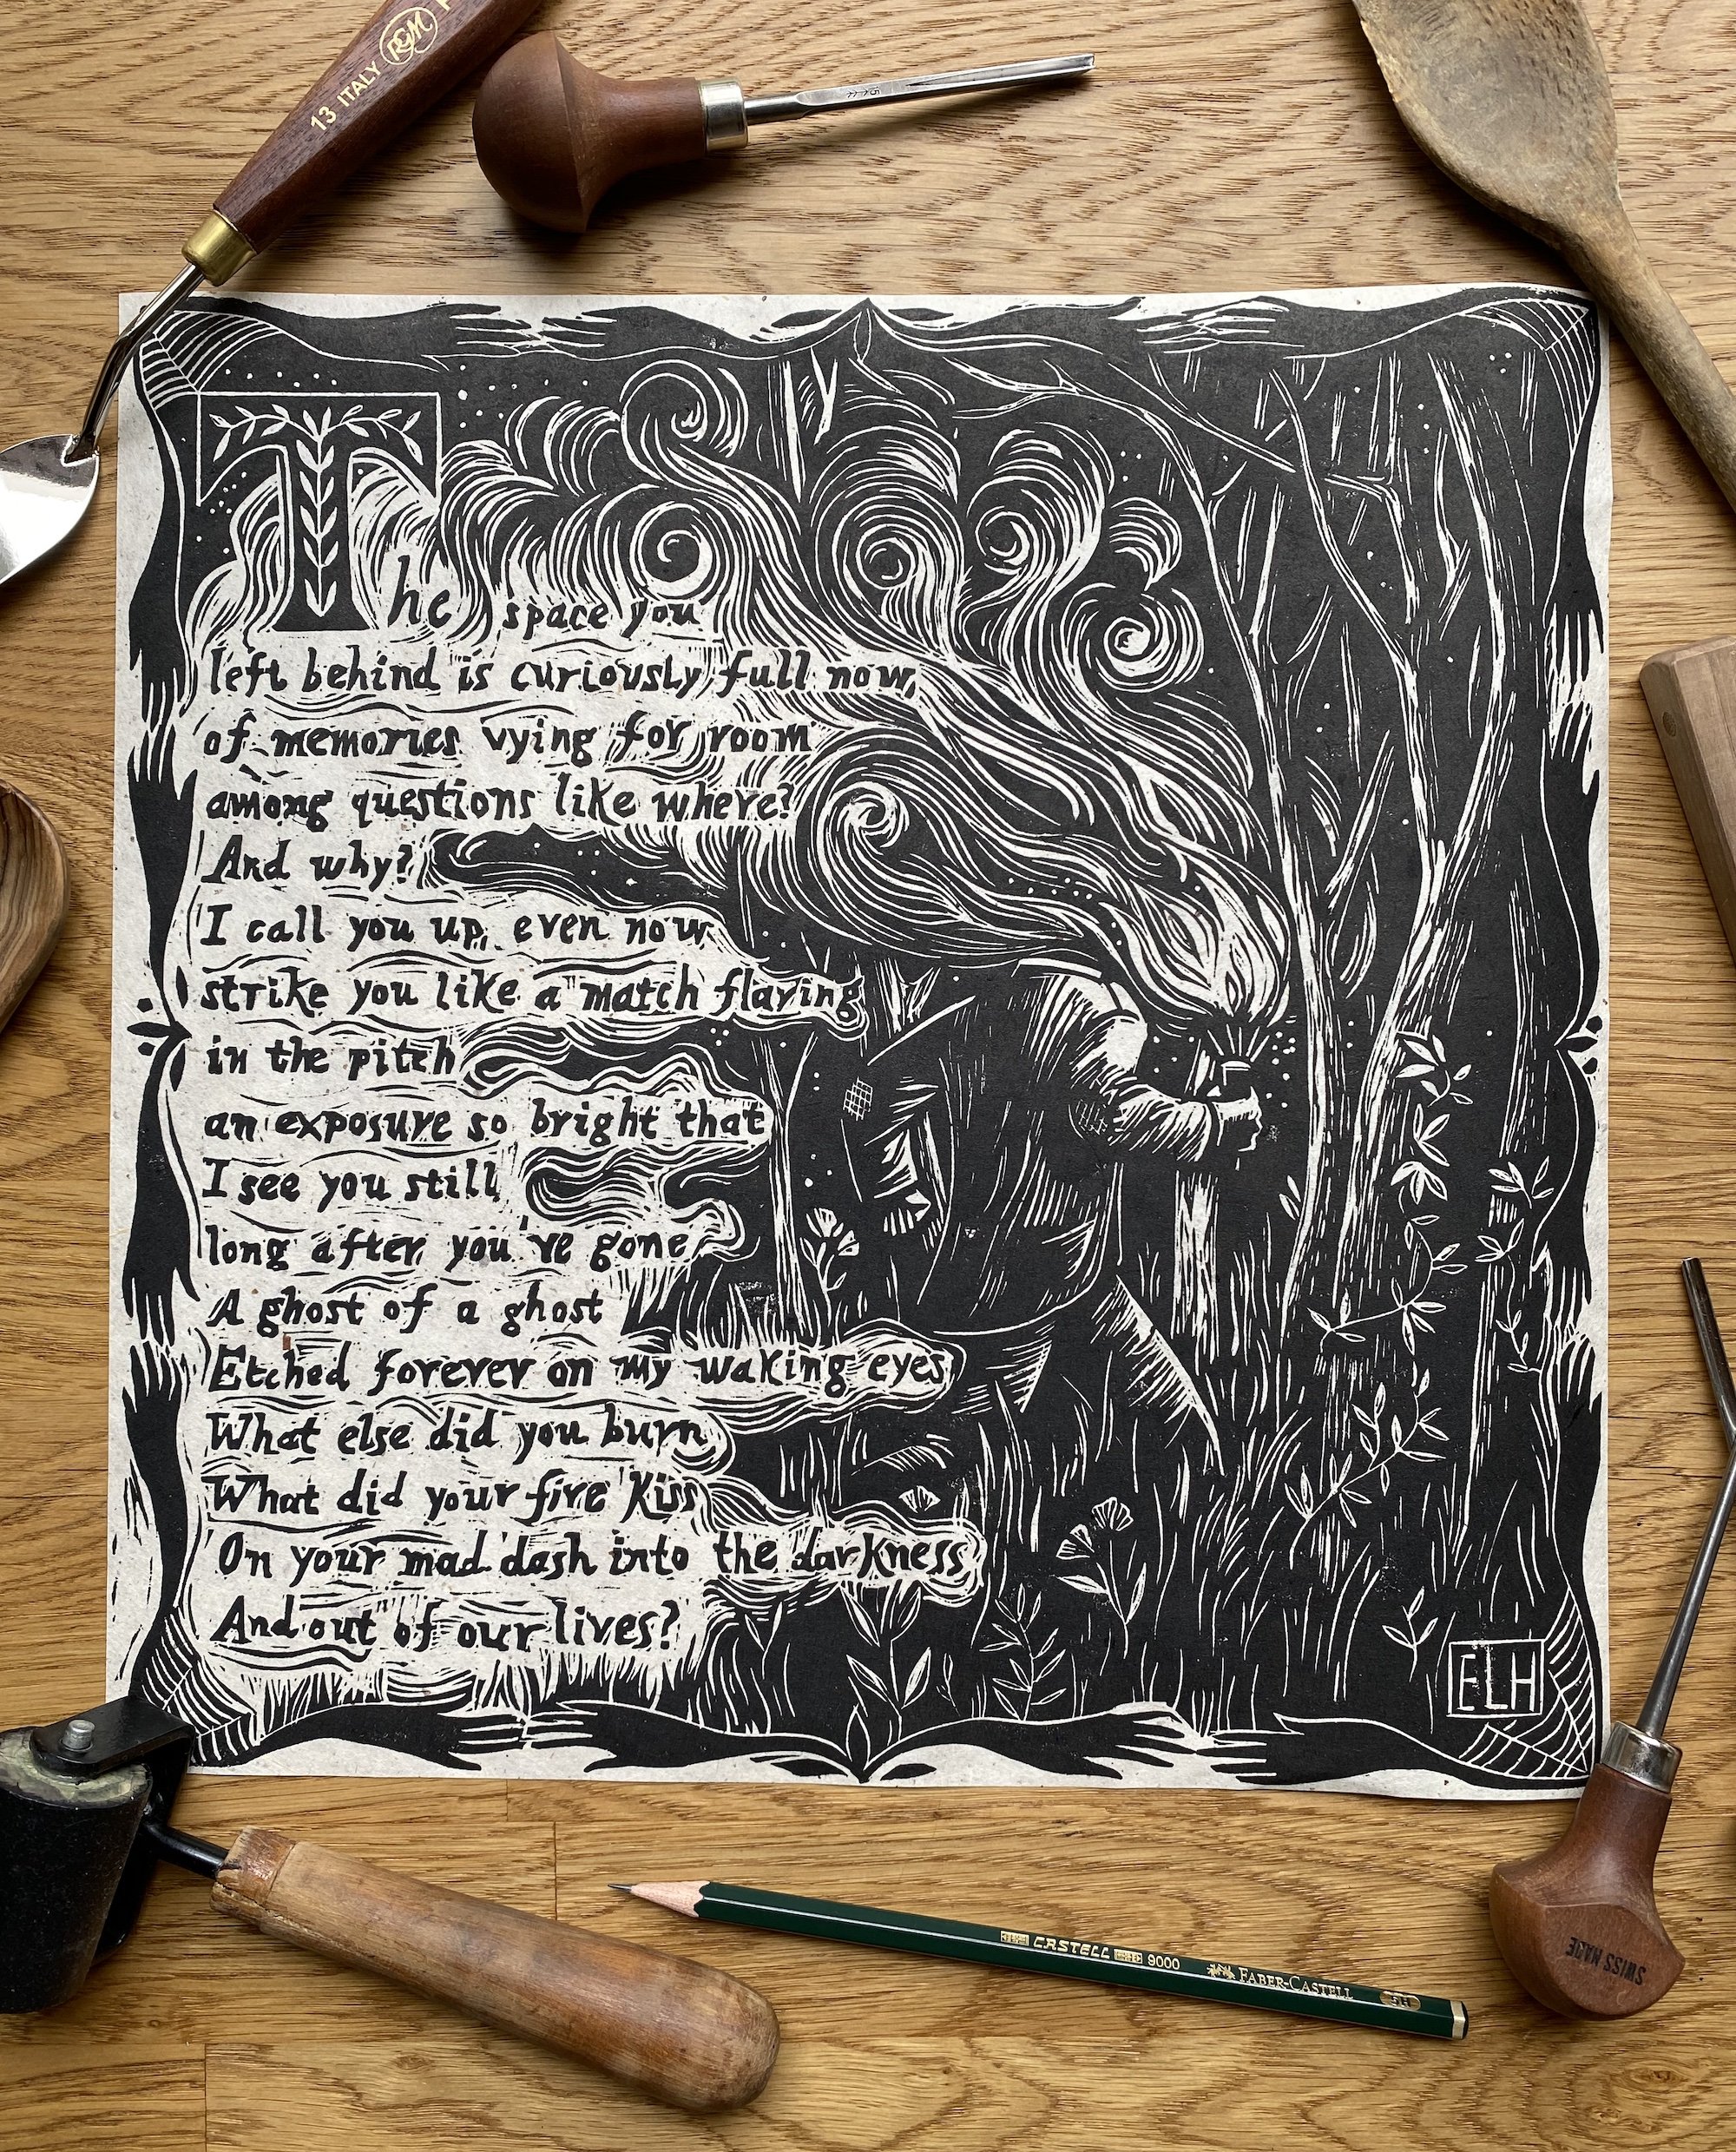 13 ITALY RGM
The space you
left behind is curiously full now,
of memories vying for room
among questions like where?
And why?
I call you up, even now
strike you like a match flaring
in the pitch
an exposure so bright that
I see you still
long after you've gone
A ghost of a ghost
Etched forever on my waking eyes
What else did you burn
What did your fire kiss
On your mad dash into the darkness
And out of our lives?
ELH
CASTELL 9000 FABER-CASTELL 5H
SWISS MADE